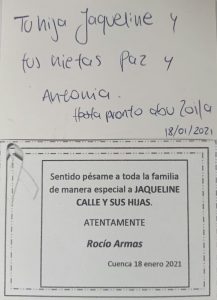 Tu hija Jaqueline y
tus nietas Paz y
Antonia.
Hasta pronto abu Zoila
18/01/2021
Sentido pésame a toda la familia
de manera especial a JAQUELINE
CALLE Y SUS HIJAS.
ATENTAMENTE
Rocío Armas
Cuenca 18 enero 2021